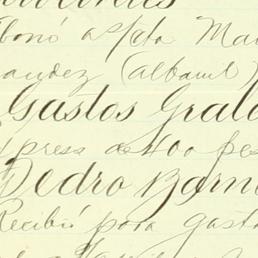 abonó a/cta Man
nandez (albañil)
Gastos Grale
xpress a 400 pes
Pedro Barn
Recibió para gasto